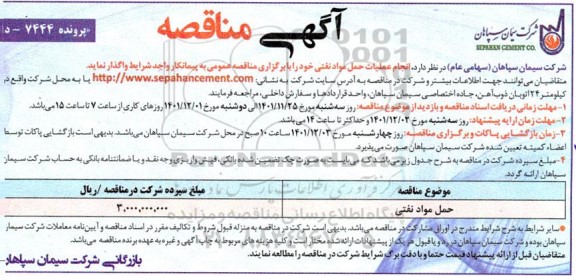 آگهی مناقصه
پرونده ۷۴۴۴ - دا
شرکت سیمان سپاهان
SEPAHAN CEMENT CO.
شرکت سیمان سپاهان (سهامی عام) در نظر دارد، انجام عملیات حمل مواد نفتی خود را با برگزاری مناقصه عمومی به پیمانکار واجد شرایط واگذار نماید.
متقاضیان می توانند جهت اطلاعات بیشتر و شرکت در مناقصه به آدرس سایت شرکت به نشانی: http://www.sepahancement.com یا به محل شرکت واقع در
کیلومتر ۲۴ اتوبان ذوب آهن، جاده اختصاصی سیمان سپاهان، واحد قراردادها و سفارش داخلی، مراجعه فرمایند.
۱- مهلت زمانی دریافت اسناد مناقصه و بازدید از موضوع مناقصه: روز سه شنبه مورخ ۱۴۰۱/۱۱/۲۵ الی دوشنبه مورخ ۱۴۰۱/۱۲/۰۱ روزهای کاری از ساعت ۷ تا ساعت ۱۵ می باشد.
۲- مهلت زمان ارایه پیشنهاد: روز سه شنبه مورخ ۱۴۰۱/۱۲/۰۲ و حداکثر تا ساعت ۱۴ می باشد.
۳- زمان بازگشایی پاکات و برگزاری مناقصه: روز چهارشنبه مورخ ۱۴۰۱/۱۲/۰۳ ساعت ۱۰ صبح در محل شرکت سیمان سپاهان می باشد. بدیهی است بازگشایی پاکات توسط
اعضاء کمیته تعیین شده شرکت سیمان سپاهان صورت می پذیرد.
۴- مبلغ سپرده شرکت در مناقصه به شرح جدول زیر می باشد که می بایست به صورت چک تضمین شده بانکی، فیش واریزی وجه نقد و یا ضمانتنامه بانکی به حساب شرکت سیمان
سپاهان ارائه گردد.
موضوع مناقصه مبلغ سپرده شرکت در مناقصه /ریال
حمل مواد نفتی ۳.۰۰۰.۰۰۰.۰۰۰
سایر شرایط به شرح شرایط مندرج در اوراق مشارکت در مناقصه می باشد. بدیهی است شرکت در مناقصه به منزله قبول شروط و تکالیف مقرر در اسناد مناقصه و آیین نامه معاملات شرکت سیمان
سپاهان بوده و شرکت سیمان سپاهان در رد و یا قبول هر یک از پیشنهادات ارائه شده مختار است. کلیه هزینه های مربوط به چاپ آگهی و غیره به عهده برنده می باشد.
متقاضیان قبل از ارائه پیشنهاد قیمت حتما و با دقت برگ شرایط شرکت در مناقصه را مطالعه نمایند.
بازرگانی شرکت سیمان سپاهان